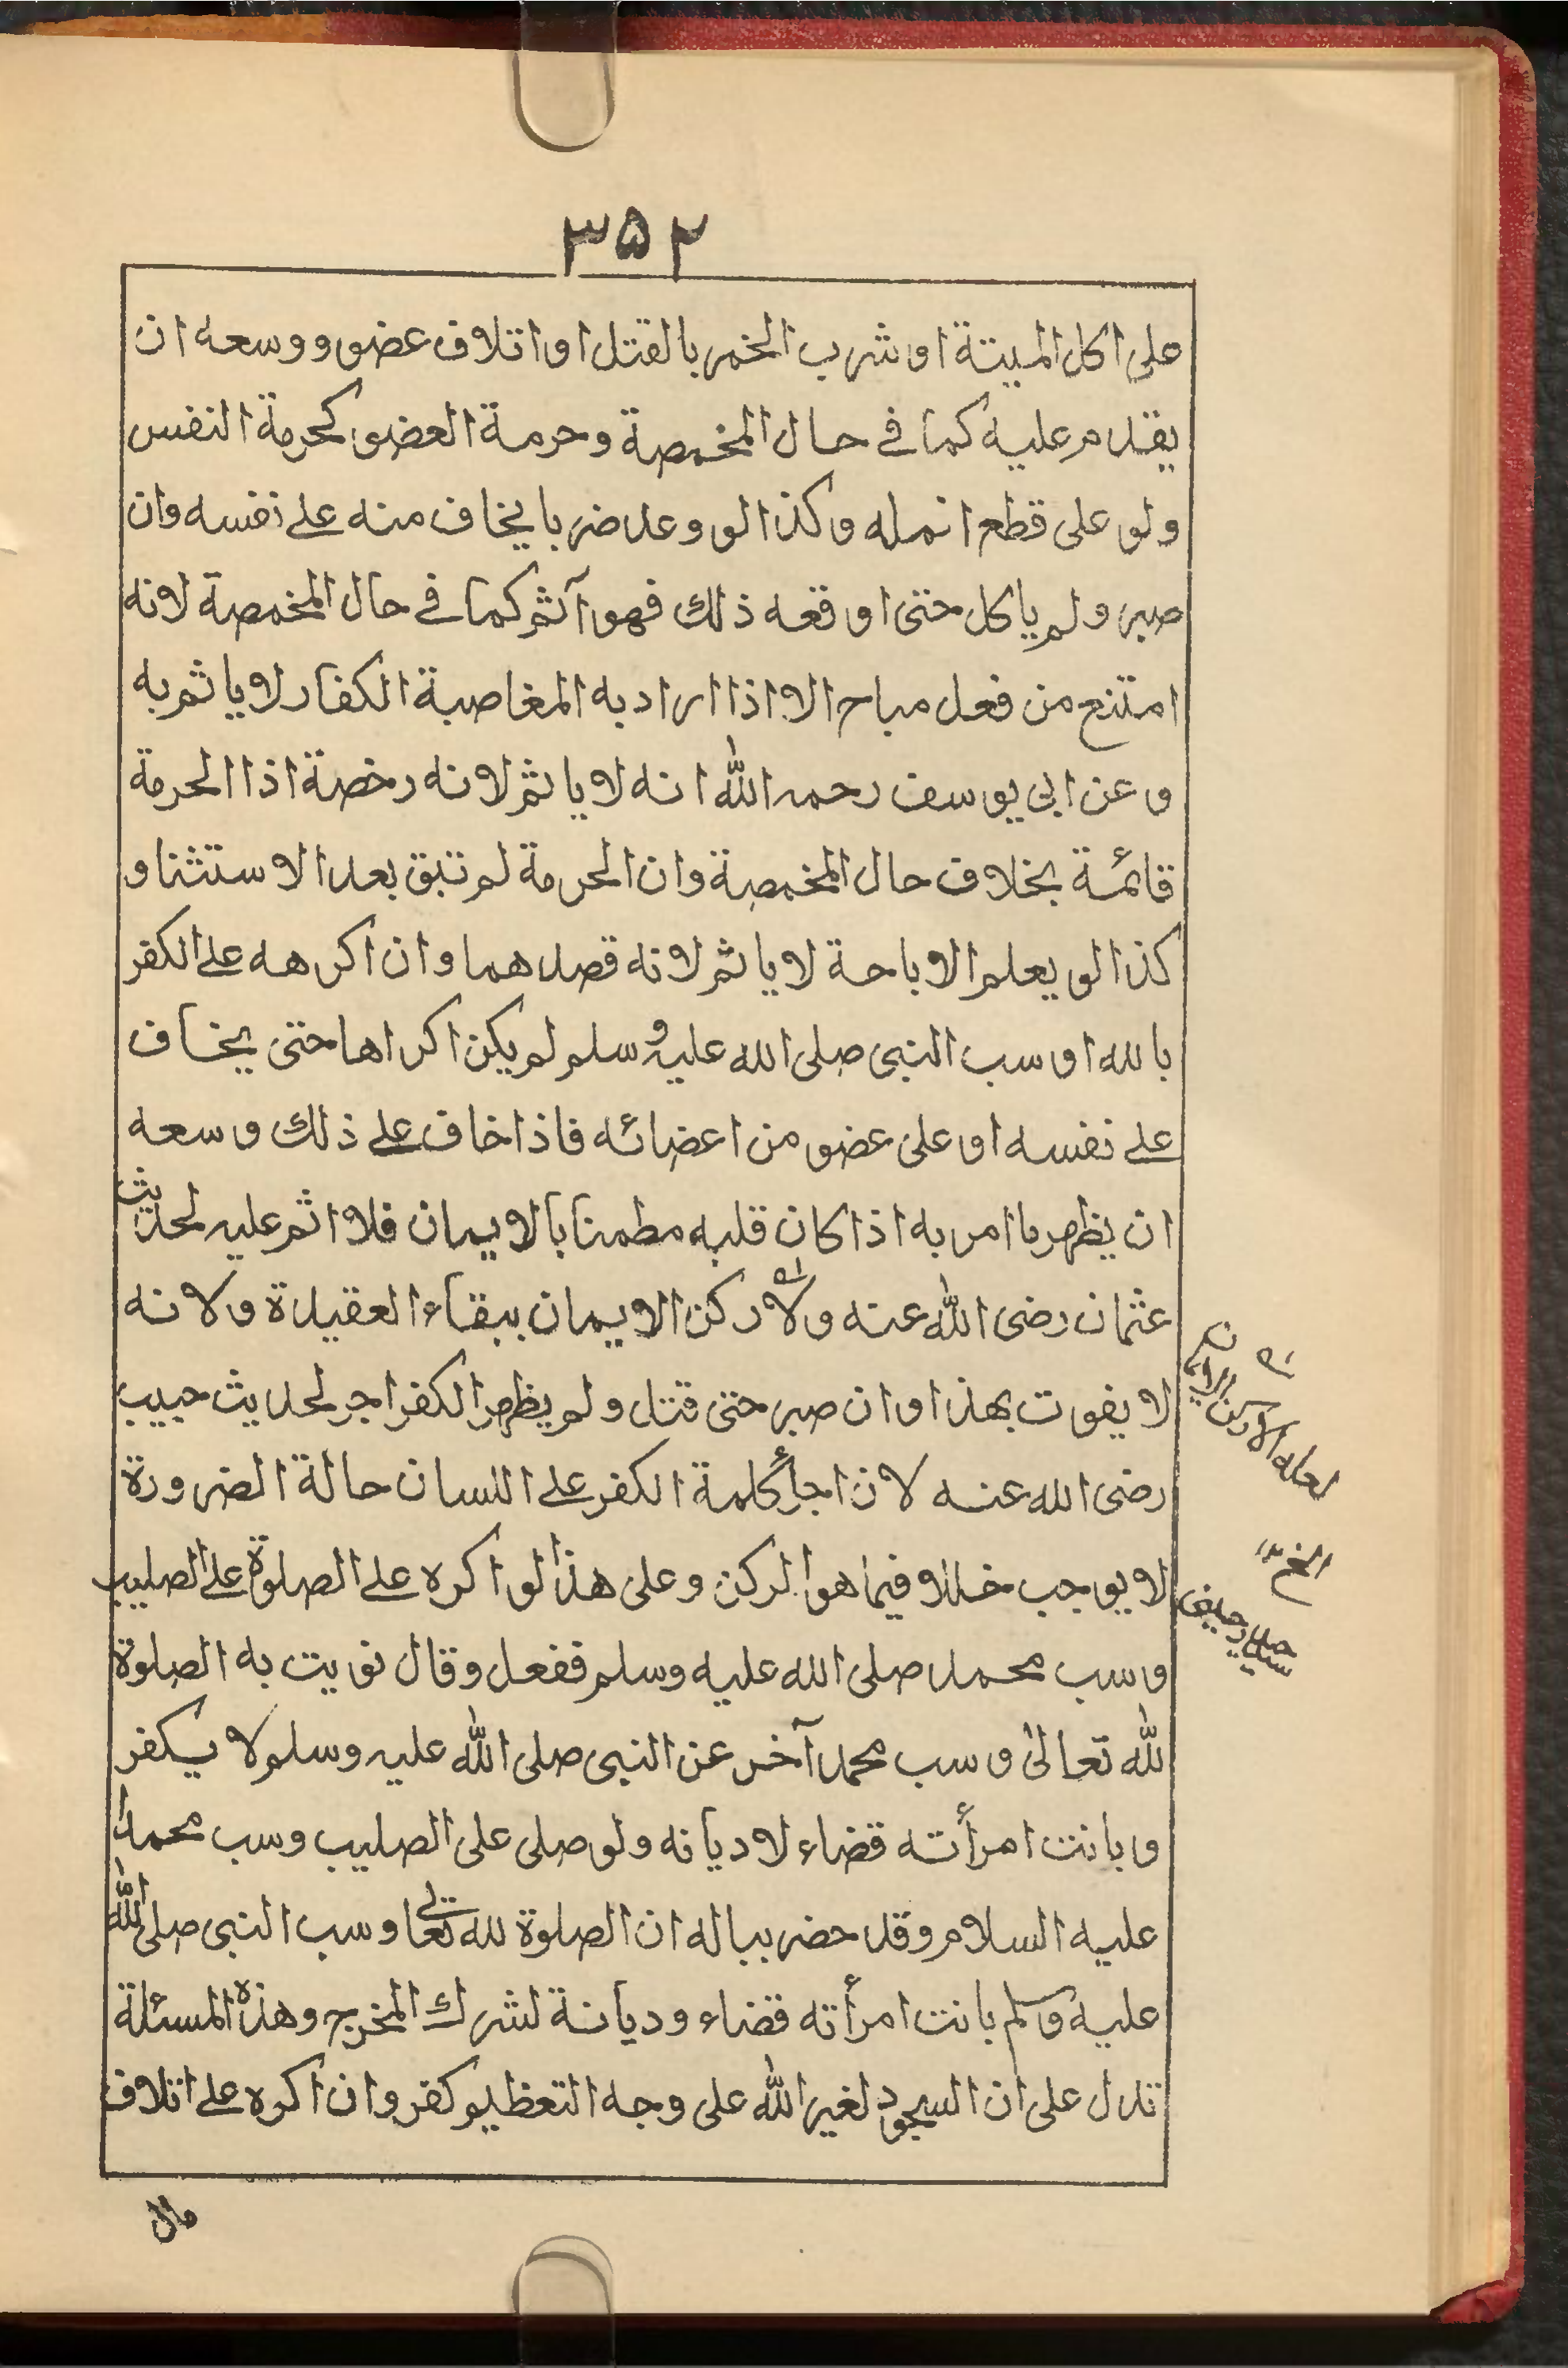 ۳۵۲
على اكل الميتة او شرب الخمر بالقتل او اتلاف عضو ووسعه ان
يقدم عليه كما في حال المخمصة وحرمة العضو كحرمة النفس
ولو على قطع انمله وكذا لو وعد ضربا يخاف منه على نفسه وان
صبر ولم ياكل حتى اوقعه ذلك فهو آثم كما في حال المخمصة لانه
امتنع من فعل مباح الا اذا اراد به المغاصبة الكفار لا ياثم به
وعن ابى يوسف رحمه الله انه لا ياثم لانه رخصة اذا الحرمة
قائمة بخلاف حال المخمصة وان الحرمة لم تبق بعد الاستثنا و
كذا لو يعلم الاباحة لا ياثم لانه قصدهما وان اكرهه على الكفر
بالله او سب النبى صلى الله عليه وسلم لم يكن اكراها حتى يخاف
على نفسه او على عضو من اعضائه فاذا خاف على ذلك وسعه
ان يظهر ما امر به اذا كان قلبه مطمنا بالايمان فلا اثم عليه لحديث
عثمان رضى الله عنه ولا ركن الايمان ببقاء العقيدة ولانه
لا يفوت بهذا وان صبر حتى قتل ولم يظهر الكفر اجر لحديث حبيب
رضى الله عنه لان اجرأ كلمة الكفر على اللسان حالة الضرورة
لا يوجب خللا فيما هو الركن وعلى هذا لو اكره على الصلوة على الصليب
وسب محمد صلى الله عليه وسلم ففعل وقال نويت به الصلوة
لله تعالى وسب محمدا آخر عن النبى صلى الله عليه وسلم لا يكفر
وبانت امرأته قضاء لا ديانه ولو صلى على الصليب وسب محمدا
عليه السلام وقد حضر بباله ان الصلوة لله تعالى وسب النبى صلى الله
عليه وسلم بانت امرأته قضاء وديانة لشرك المخرج وهذه المسئلة
تدل على ان السجود لغير الله على وجه التعظيم كفر وان اكره على اتلاف
مال
لعله الان ركن
الخ ۱۲